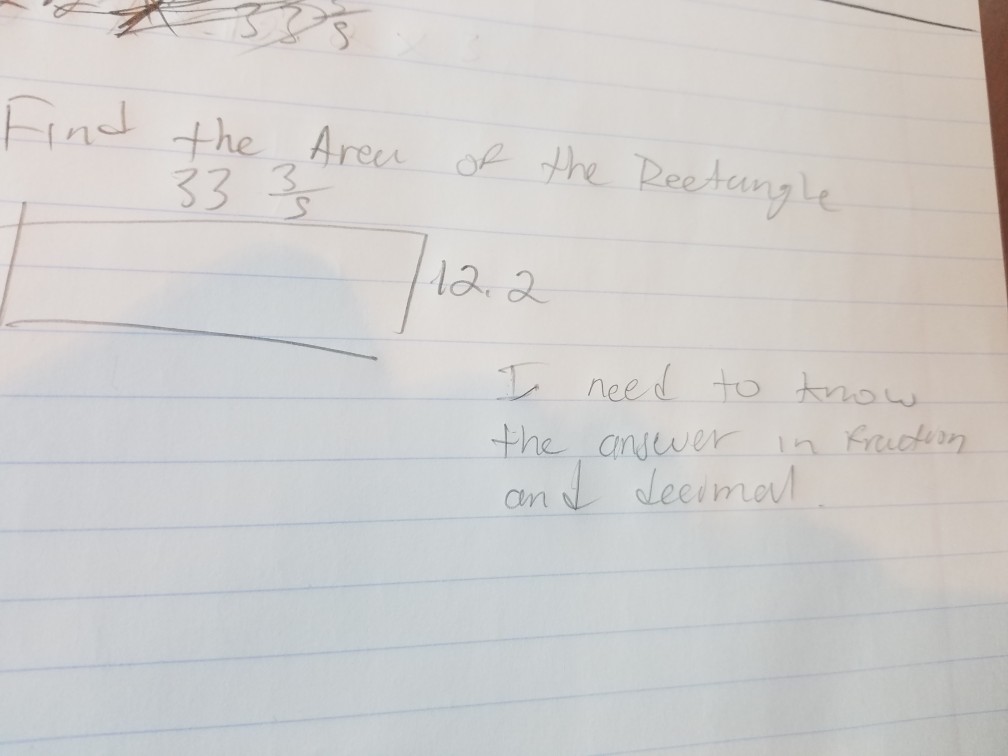 33 3/5
Find the Area of the Rectangle
33 3/5
12.2
I need to know
the answer in fraction
and decimal.